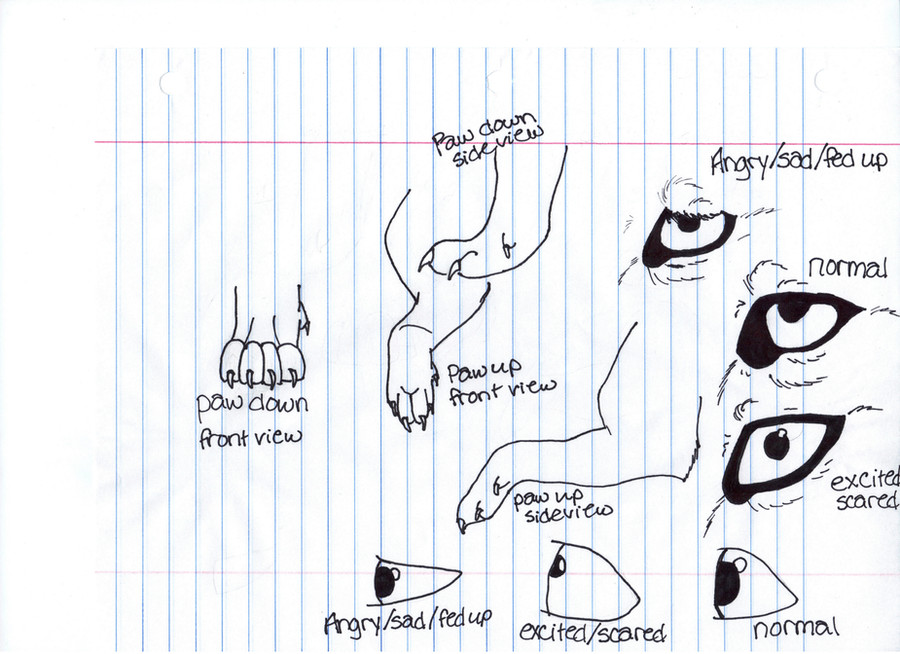 Paw down
side view
Angry/sad/fed up
normal
Paw up
front view
paw down
front view
excited
scared
paw up
sideview
Angry/sad/fed up
excited/scared
normal